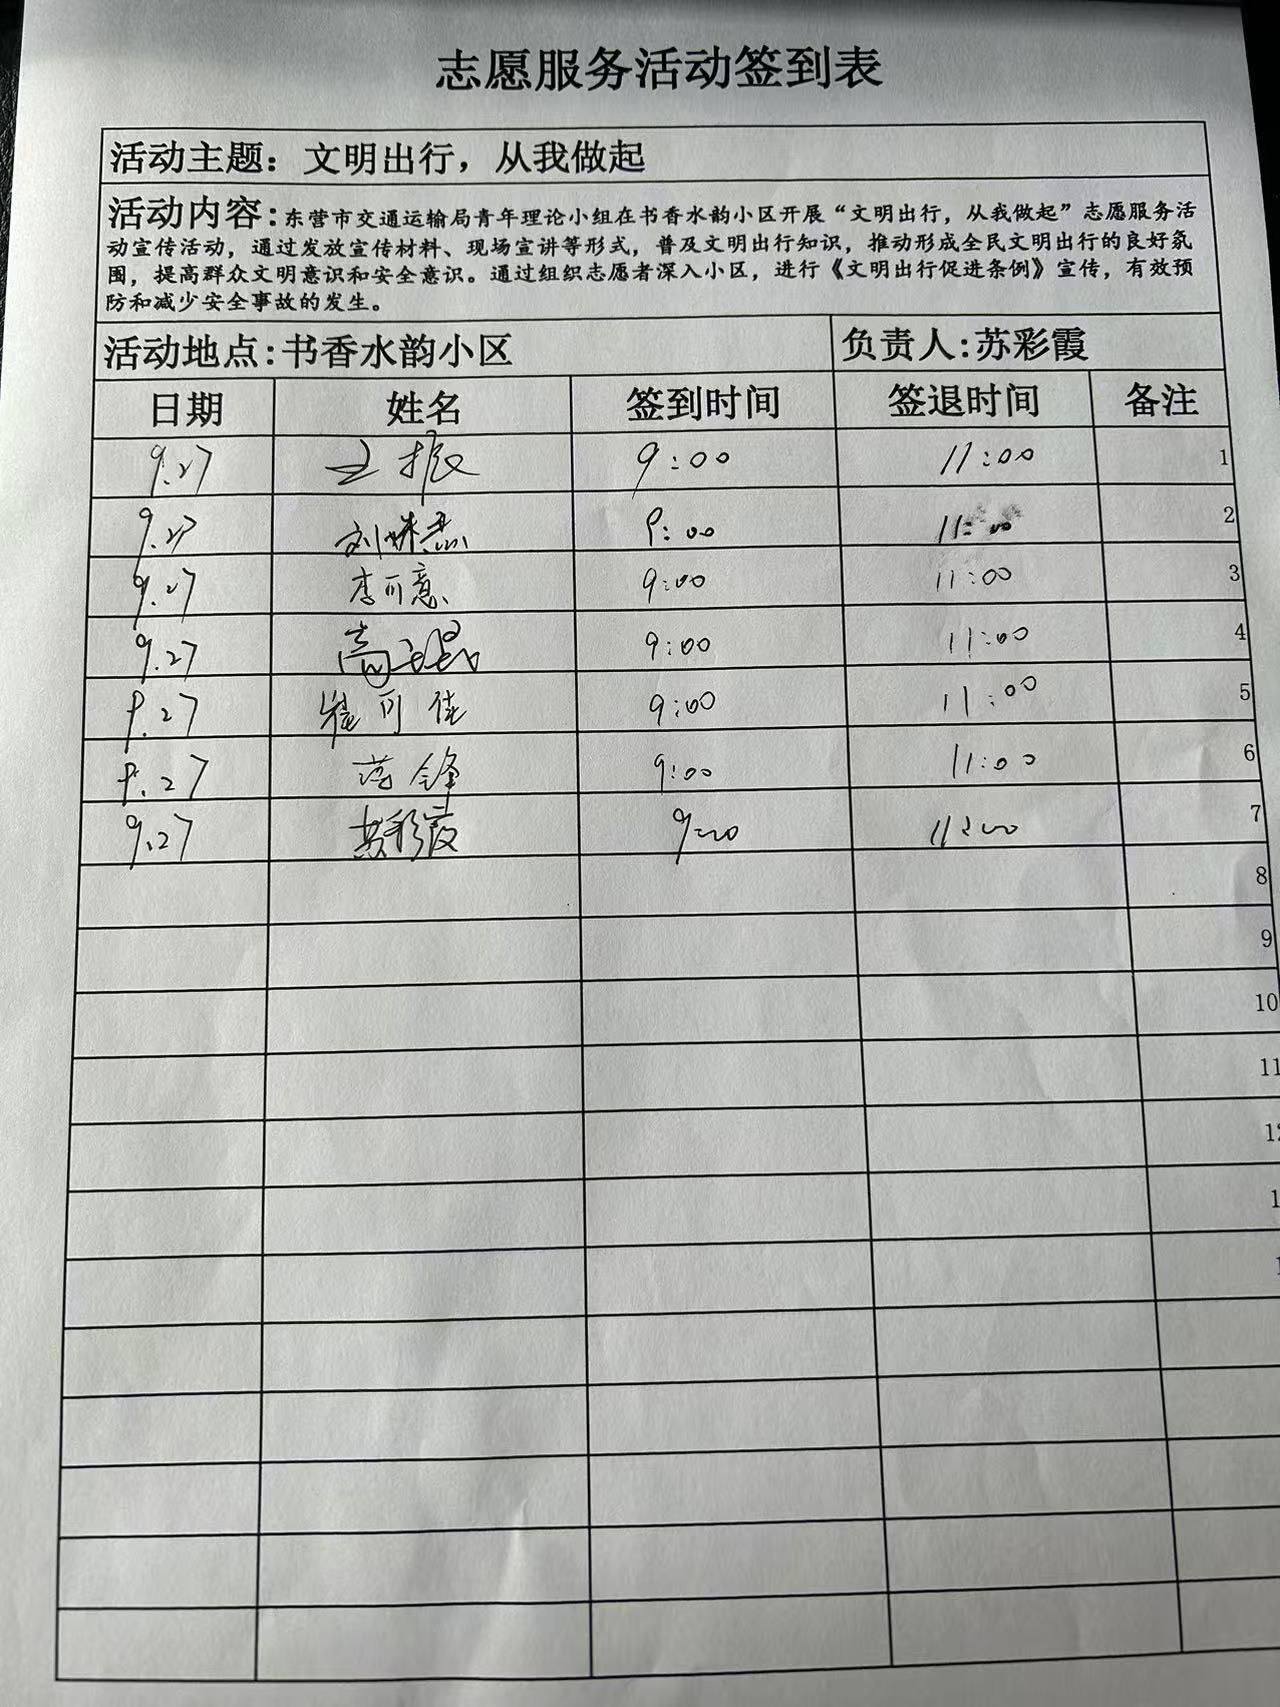 志愿服务活动签到表
活动主题：文明出行，从我做起
活动内容：东营市交通运输局青年理论小组在书香水韵小区开展“文明出行，从我做起”志愿服务活
动宣传活动，通过发放宣传材料、现场宣讲等形式，普及文明出行知识，推动形成全民文明出行的良好氛
围，提高群众文明意识和安全意识。通过组织志愿者深入小区，进行《文明出行促进条例》宣传，有效预
防和减少安全事故的发生。
活动地点：书香水韵小区 负责人：苏彩霞
日期 姓名 签到时间 签退时间 备注
9.27 王振 9:00 11:00 1
9.27 9:00 11:00 2
9.27 李可意 9:00 11:00 3
9.27 9:00 11:00 4
9.27 崔可佳 9:00 11:00 5
9.27 9:00 11:00 6
9.27 9:00 11:00 7
8
9
10
11